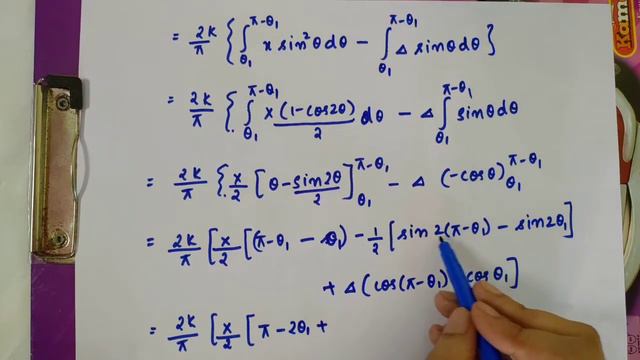 Kom
= 2K/π { ∫_θ₁^π-θ₁ x sin²θ dθ - ∫_θ₁^π-θ₁ Δ sinθ dθ }
= 2K/π { ∫_θ₁^π-θ₁ x (1-cos2θ)/2 dθ - Δ ∫_θ₁^π-θ₁ sinθ dθ
= 2K/π { x/2 [ θ - sin2θ/2 ]_θ₁^π-θ₁ - Δ (-cosθ)_θ₁^π-θ₁
= 2K/π [ x/2 [ (π-θ₁ - θ₁) - 1/2 [ sin 2(π-θ₁) - sin2θ₁ ]
+ Δ ( cos(π-θ₁) cosθ₁ ]
= 2K/π [ x/2 [ π - 2θ₁ +